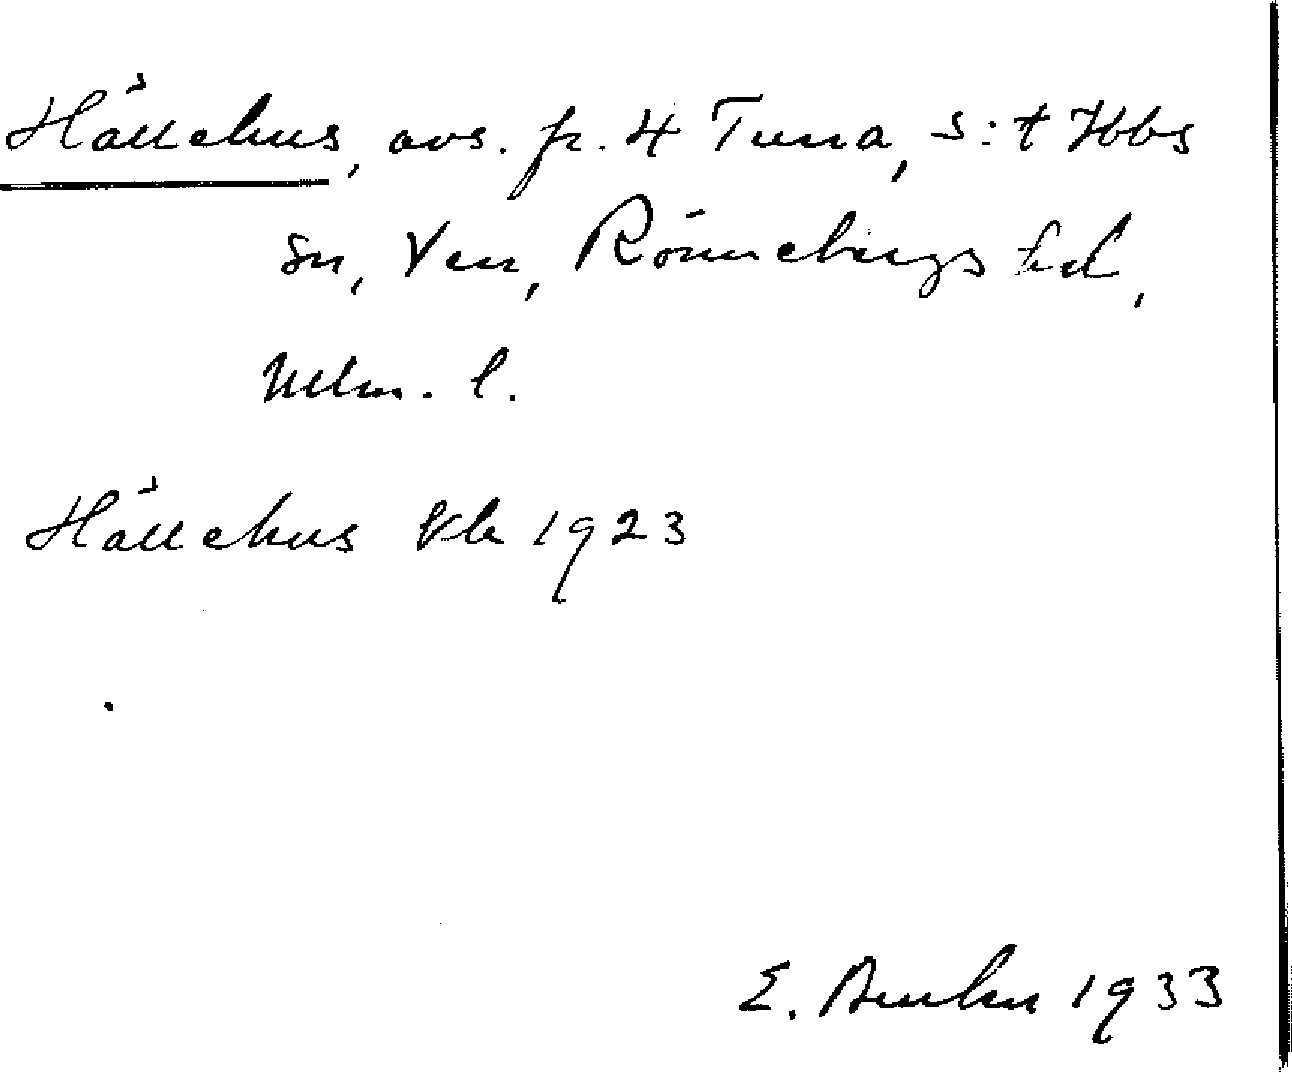 Hållehus, avs. fr. 4 Tuna, S:t Ibbs
sn, Ven, Rönnebergs hd,
Mlm. l.
Hållehus 1923
E. 1933